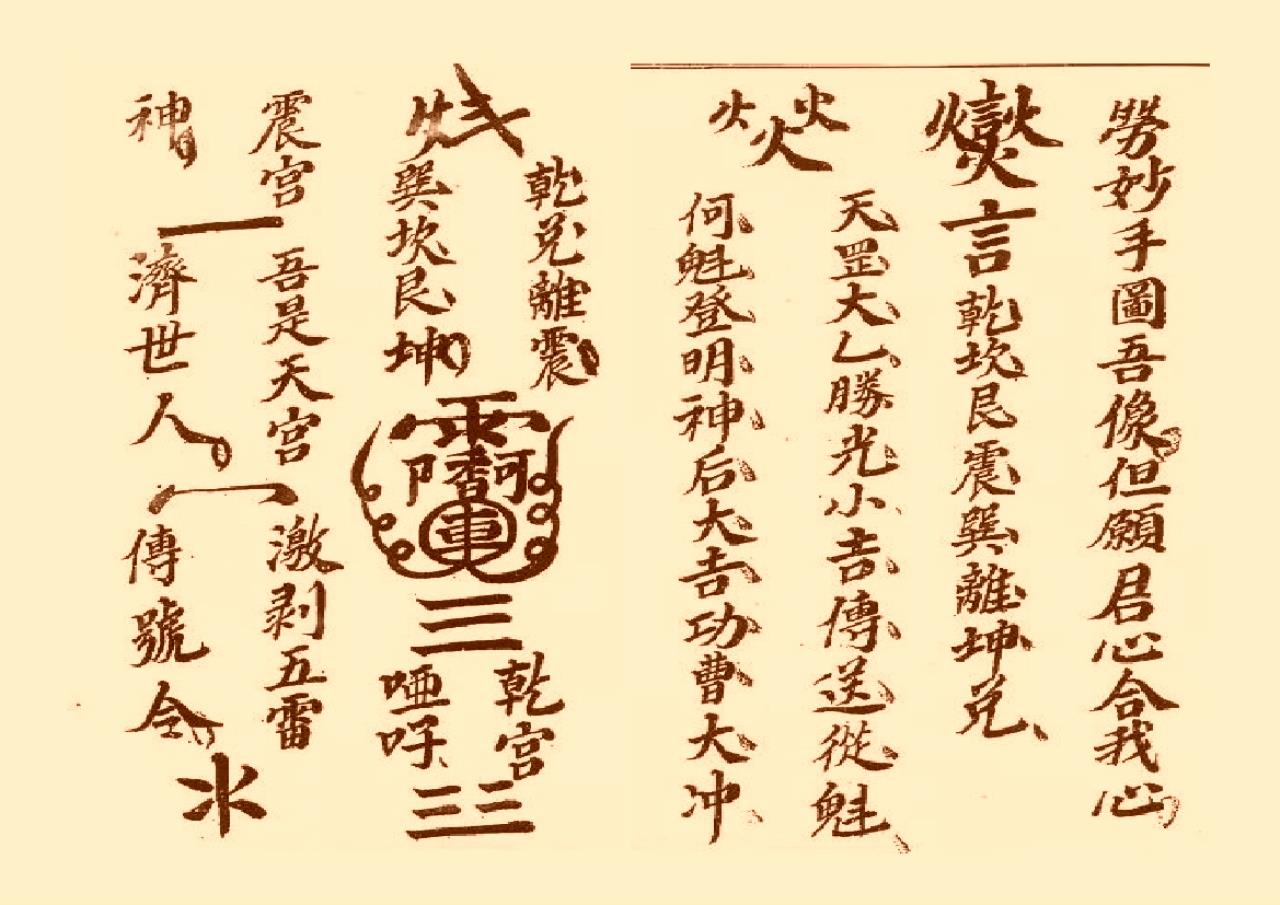 勞妙手圖吾像但願君心合我心
言乾坎艮震巽離坤兌
焱
天罡大乙勝光小吉傳送從魁
何魁登明神后大吉功曹大冲
乾兌離震
巽坎艮坤
三
乾宮
啞吇
三三
震宮
吾是天宮
激剥五雷
神
濟世人
傳號令
水